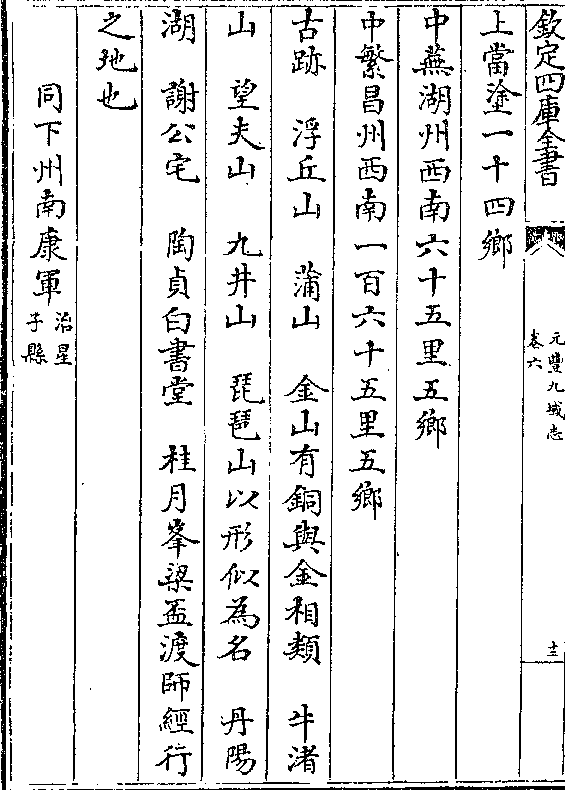 欽定四庫全書
元豐九域志
卷六
十三
上當塗一十四鄉
中蕪湖州西南六十五里五鄉
中繁昌州西南一百六十五里五鄉
古跡　浮丘山　蒲山　金山有銅與金相類　牛渚
山　望夫山　九井山　琵琶山以形似為名　丹陽
湖　謝公宅　陶貞白書堂　桂月峯梁盃渡師經行
之地也
同下州南康軍治星
子縣